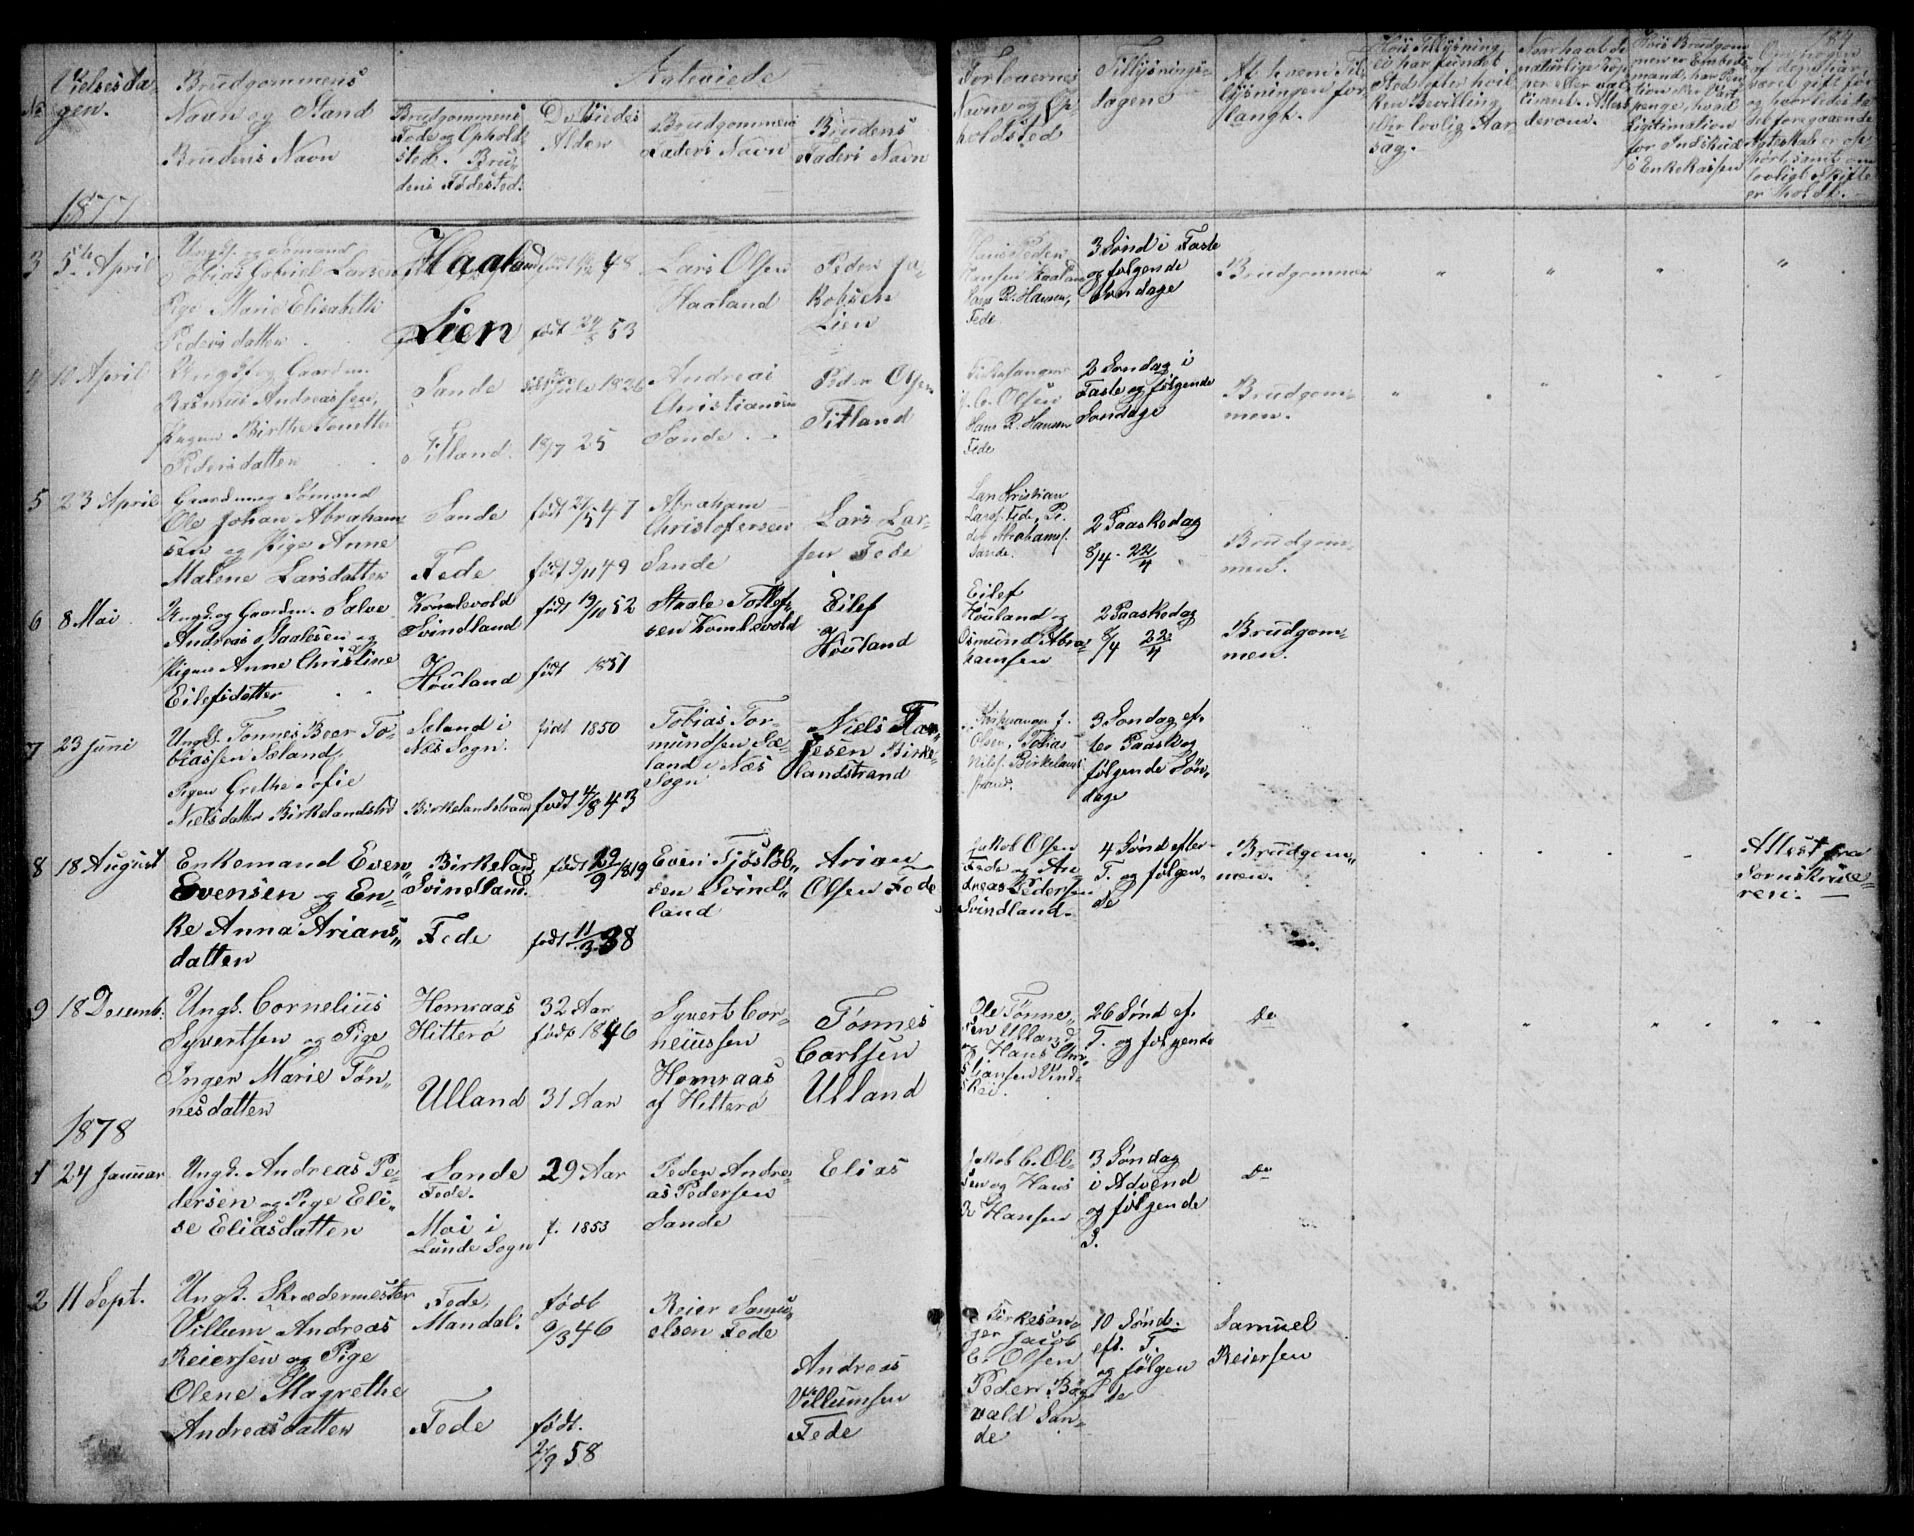 184
No
Vielsesda-
gen.
Brudgommens
Navn og Stand
Brudens Navn
Antoiede
Brudgommens
Føde og Ophold
sted. Bru-
dens Fødested.
De Viedes
Alder
Brudgommens
Faders Navn
Brudens
Faders Navn
Forlovernes
Navne og Op-
holdsted
Tillysnings-
dagene
Af hvem Til-
lysningen for-
langt.
Hvis Tillysning
ei har fundet
Sted efter hvil-
ken Bevilling
eller lovlig Aar-
sag.
Naar havt de
naturlige Kop-
per eller vac-
cineret. Attest
derom.
Hvis Brudgom
men er Embeds-
mand, har Pen-
tion eller Vart-
penge, hvad
Legitimation
for Indskud
i Enkekassen
Om nogen
af dem har
været gift før
og hvorledes da
det foregaaende
Ægteskab er op-
hørt, samt om
lovligt Skifte
er holdt.
1877
3
5te April
Ungk. og Sømand
Tobias Gabriel Larsen
Pige Marie Elisabeth
Peders datter
Haaland
Lien
48
født 24/8 53
Lars Olsen
Haaland
Peder Ja-
kobsen
Lien
Hans Peder
Hansen Haaland
Hans R. Hansen,
Fede
3 Sønd i Faste
og følgende
Søndage
Brudgommen
4
10 April
Ungk og Gaardm.
Rasmus Andreassen,
Pigen Birthe Tomine
Pedersdatter
Sande
Titland.
1826
18/7 25
Andreas
Christiansen
Sande
Peder Olsen
Titland
Kirkesanger
J. C. Olsen
Hans R. Hansen
Fede
2 Søndag i
Faste og følgende
Søndage
Brudgom-
men.
5
23 April
Gaardm og Sømand
Ole Johan Abraham-
sen og Pige Anne
Malene Larsdatter
Sande
Fede
født 21/5 47
født 9/11 49
Abraham
Christofersen
Sande
Lars Lar-
sen Fede
Lars Kristian
Lars. Fede, Pe-
der Abrahams.
Sande.
2 Paaskedag
8/4 - 22/4
Brudgom-
men.
6
8 Mai
Ungk. og Gaardm. Salve
Andreas Staalesen og
Pigen Anne Christine
Eilefsdatter
Komlevold
Svindland
Høuland
født 19/10 52
født 1851
Staale Tollef-
sen Komlevold
Eilef
Høuland
Eilef
Høuland og
Osmund Abra-
hamsen
2 Paaskedag
8/4 22/4
Brudgom-
men.
7
23 Juni
Ungk. Tønnes Beer To-
biassen Sæland,
Pigen Grethe Sofie
Nielsdatter Birkelandsstrd
Sæland i
Næs Sogn.
Birkelandstrand
født 1850
født 4/8 43
Tobias Tor-
mundsen Sæ-
land i Næs
Sogn
Niels Tar-
jesen Birke-
landstrand
Kirkesanger J.
Olsen, Tobias
Nils. Birkelands-
strand.
3 Søndag ef-
ter Paaske og
følgende Søn-
dage
8
18 August
Enkemand Even
Evensen og En-
ke Anna Arians-
datter
Birkeland
Svindland.
Fede
født 29/9 1819
født 11/3 38
Even Tjøstols-
sen Svind-
land
Arian
Olsen Fede
Jakob Olsen
Fede og An-
dreas Pedersen
Svindland.
4 Sønd efter
T. og følgen-
de
Brudgom-
men.
Attest fra
Sorenskrive-
ren.
9
18 Decemb.
Ungk. Cornelius
Syvertsen og Pige
Inger Marie Tøn-
nesdatter
Homraas
Hitterø
Ulland
32 Aar
født 1846
31 Aar
Syvert Cor-
neiussen
Homraas
af Hitterø
Tønnes
Carlsen
Ulland
Ole Tønne-
sen Ulland
og Hans Chri-
stiansen Vind-
skei.
26 Sønd ef.
T. og følgende
Do
1878
1
24 Januar
Ungk. Andreas Pe-
dersen og Pige Eli-
se Eliasdatter
Sande
Fede.
Moi i
Lunde Sogn
29 Aar
f. 1853
Peder Andre-
as Pedersen
Sande
Elias
Jakob C. Ol-
sen og Hans
R Hansen
3 Søndag
i Advend
og følgende
S.
Do
2
11 Sept.
Ungk. Skrædermester
Villum Andreas
Reiersen og Pige
Olene Magrethe
Andreasdatter
Fede,
Mandal.
Fede
født
9/3 46
født.
2/9 58
Reier Samu-
elsen Fede
Andreas
Villumsen
Fede
Kirkesan-
ger Jacob
C. Olsen
Peder Bøg-
vald San-
de
10 Sønd.
eft. T.
og følgen
de
Samuel
Reiersen